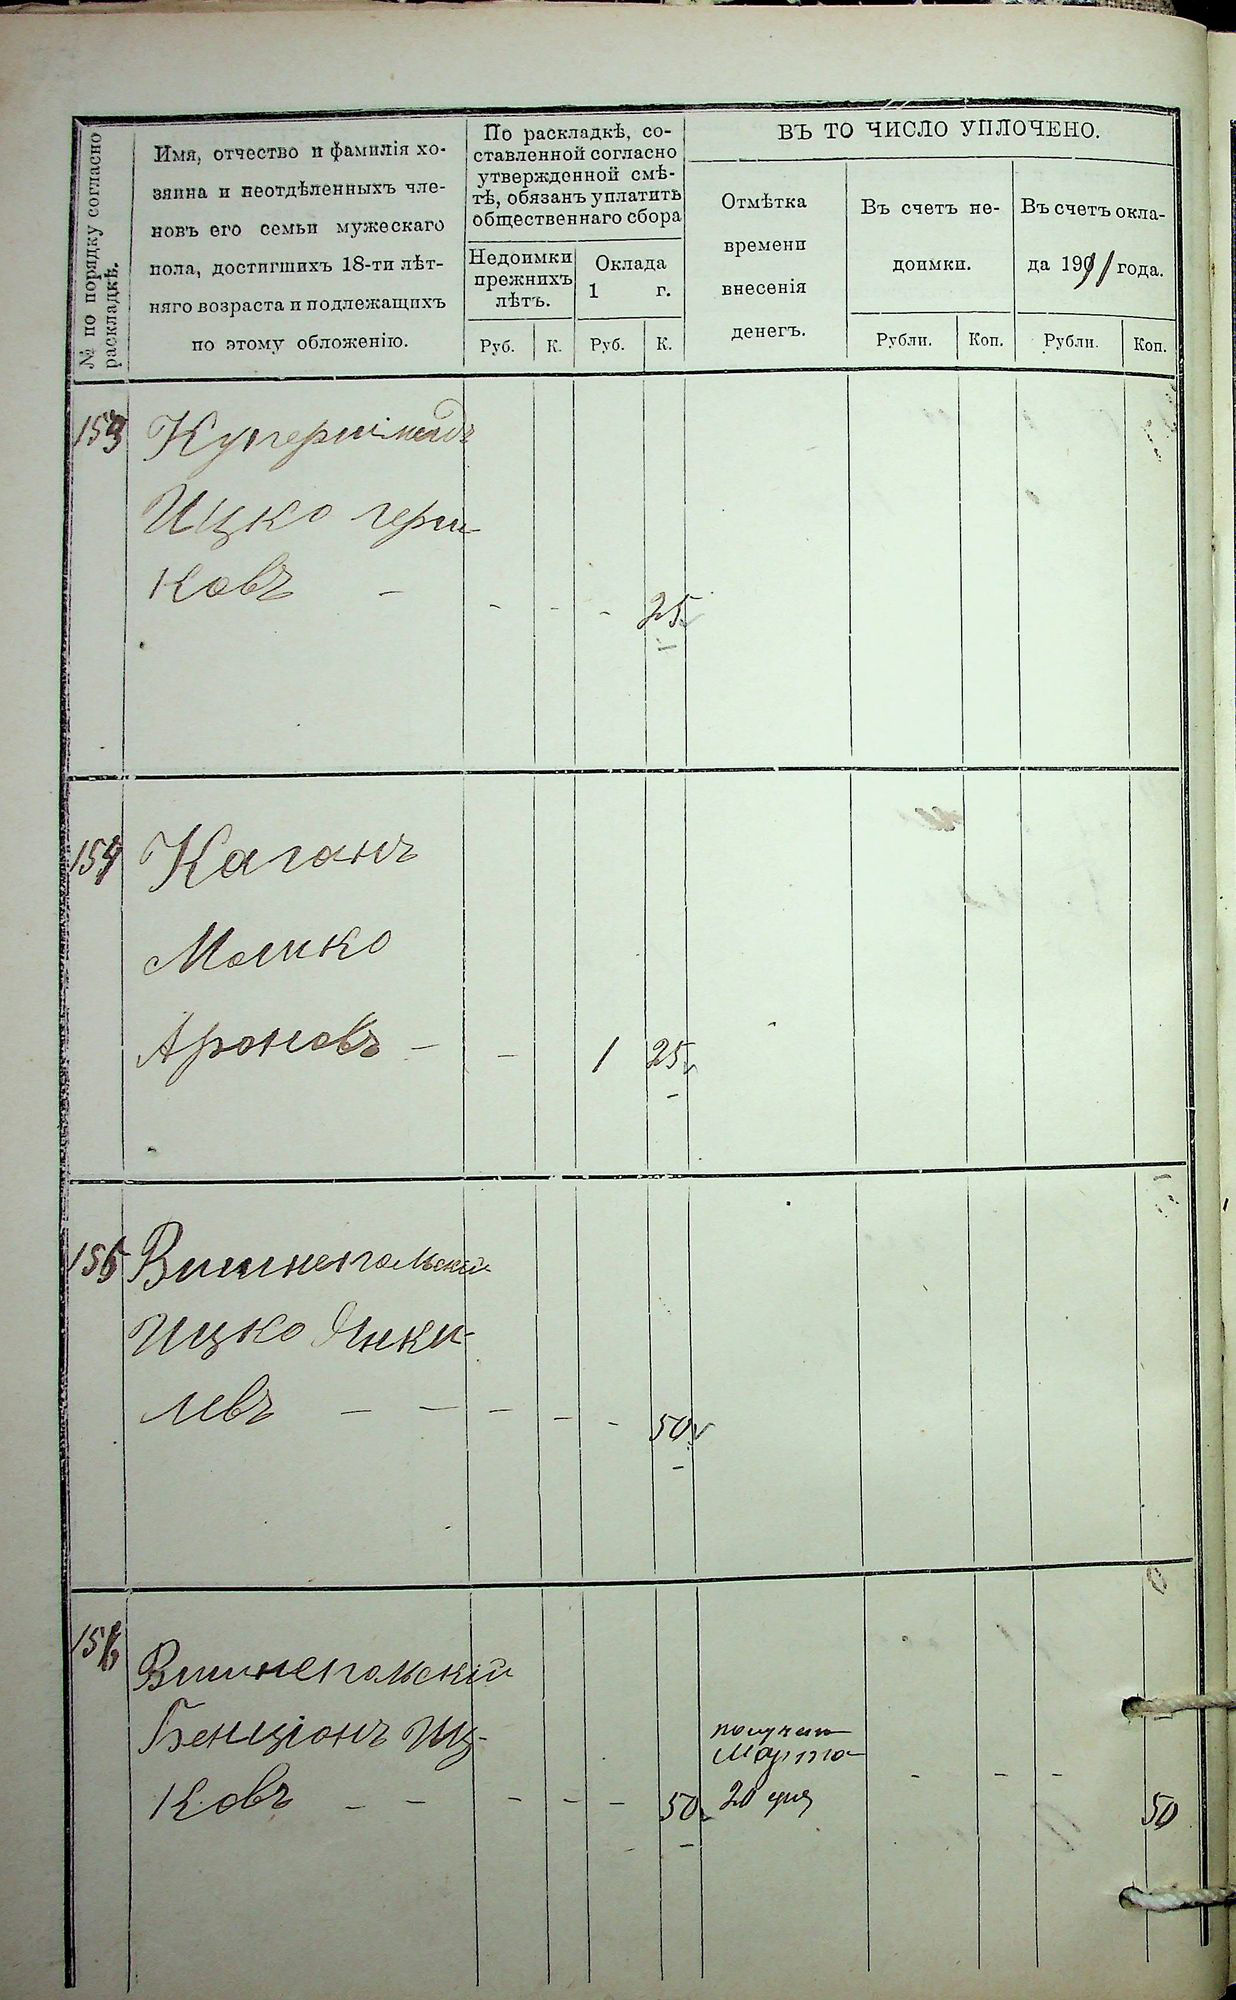 № по порядку согласно
раскладкѣ.
Имя, отчество и фамилія хо-
зяина и неотдѣленныхъ чле-
новъ его семьи мужескаго
пола, достигшихъ 18-ти лѣт-
няго возраста и подлежащихъ
по этому обложенію.
По раскладкѣ, со-
ставленной согласно
утвержденной смѣ-
тѣ, обязанъ уплатить
общественнаго сбора
Недоимки
прежнихъ
лѣтъ.
Руб. К.
Оклада
1 г.
Руб. К.
ВЪ ТО ЧИСЛО УПЛОЧЕНО.
Отмѣтка
времени
внесенія
денегъ.
Въ счетъ не-
доимки.
Рубли. Коп.
Въ счетъ окла-
да 1911 года.
Рубли. Коп.
153 Купершмидъ
Ицко Герш-
ковъ - - - - 25
154 Каганъ
Мошко
Ароновъ - - 1 25
155 Вишнепольскій
Ицко Янки-
левъ - - - - - 50
156 Вишнепольскій
Бенціонъ Иц-
ковъ - - - - - 50
получен
Марта
20 дня - - - 50